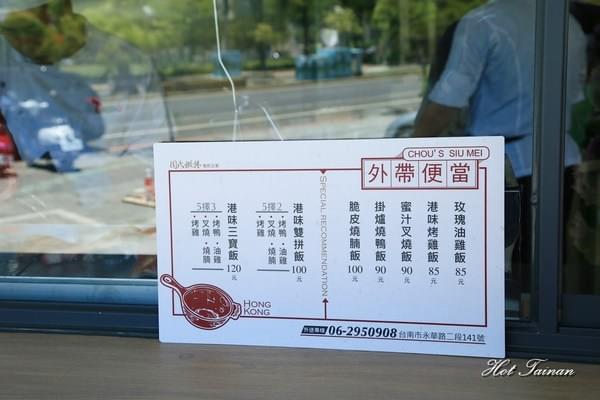 CHOU'S SIU MEI
外帶便當
玫瑰油雞飯 85元
港味烤雞飯 85元
蜜汁叉燒飯 90元
掛爐燒鴨飯 90元
脆皮燒腩飯 100元
SPECIAL RECOMMENDATION
港味雙拼飯 100元
5擇2
烤鴨．油雞
叉燒．燒腩
烤雞
港味三寶飯 120元
5擇3
烤鴨．油雞
叉燒．燒腩
烤雞
HONG
KONG
外送專線 06-2950908 台南市永華路二段141號
Hot Tainan